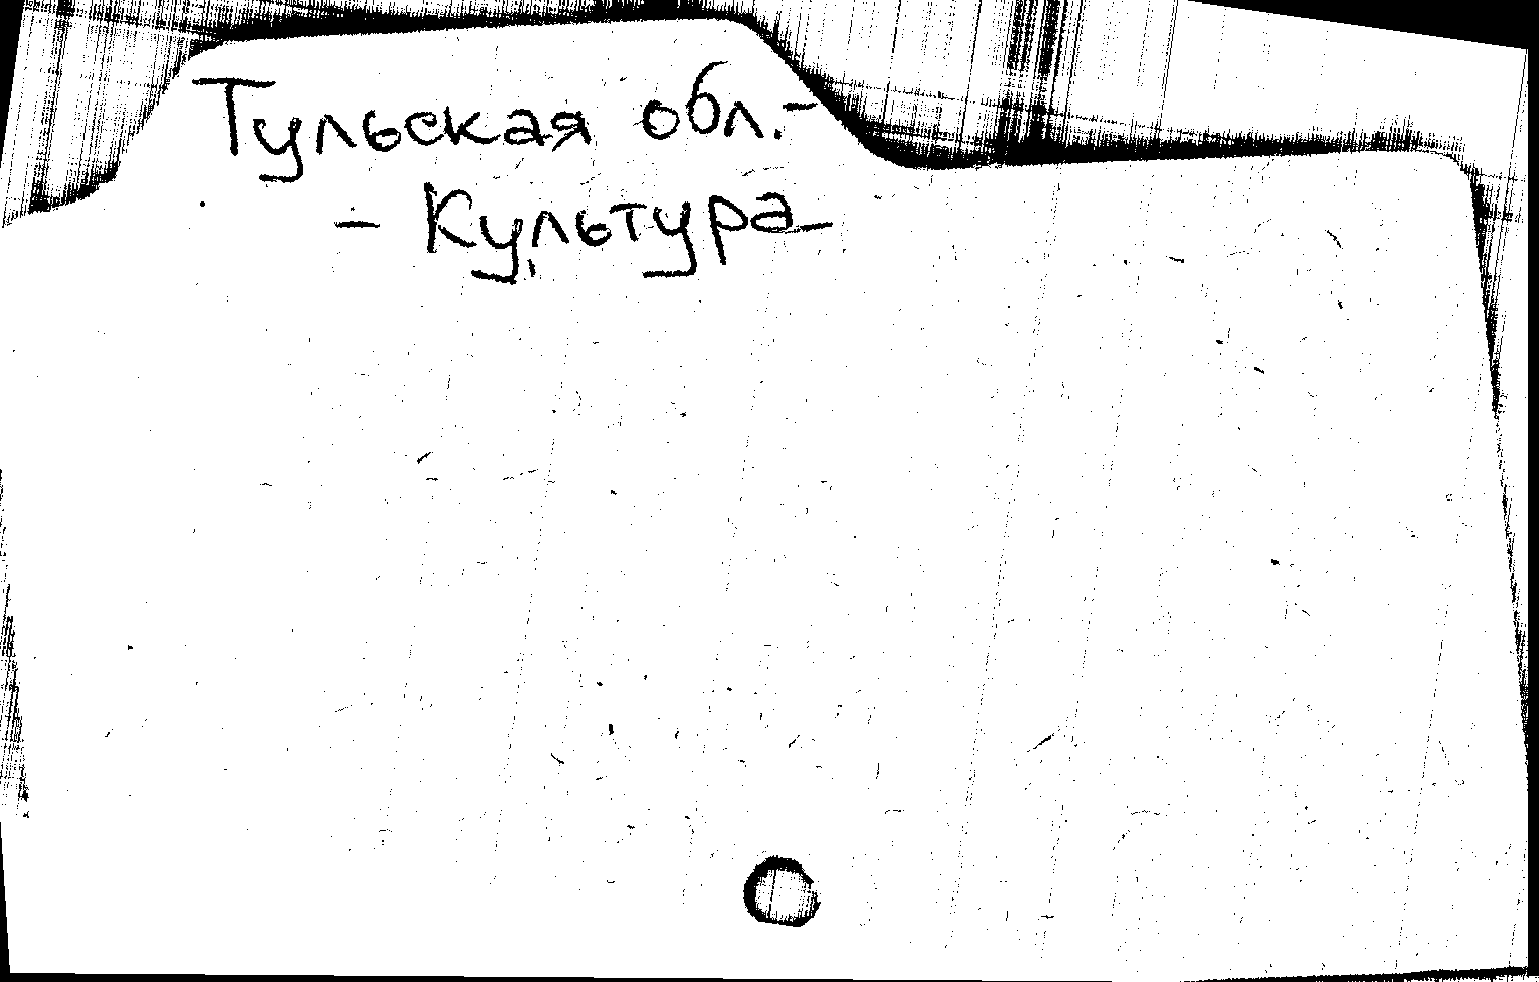 Тульская обл.-
- Культура-